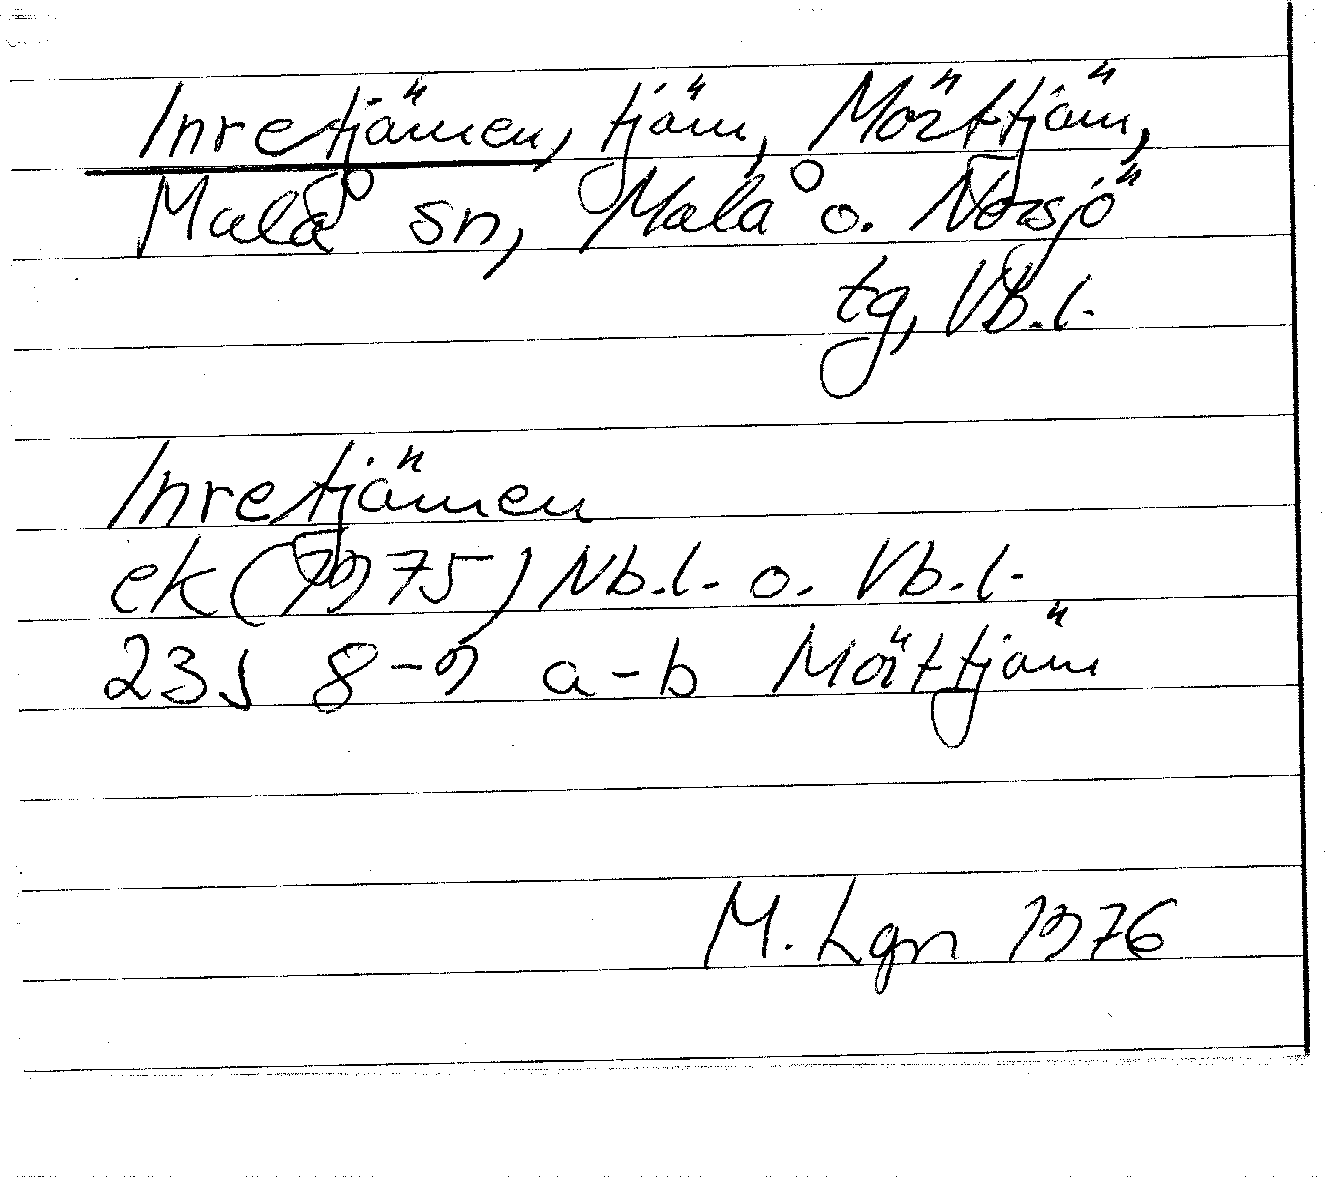 Inretjärnen, tjärn, Mörttjärn,
Malå sn, Malå o. Norsjö
tg, Vb.l.
Inretjärnen
ek (1975) Nb.l. o. Vb.l.
23J 8-9 a-b Mörttjärn
M. Lgn 1976